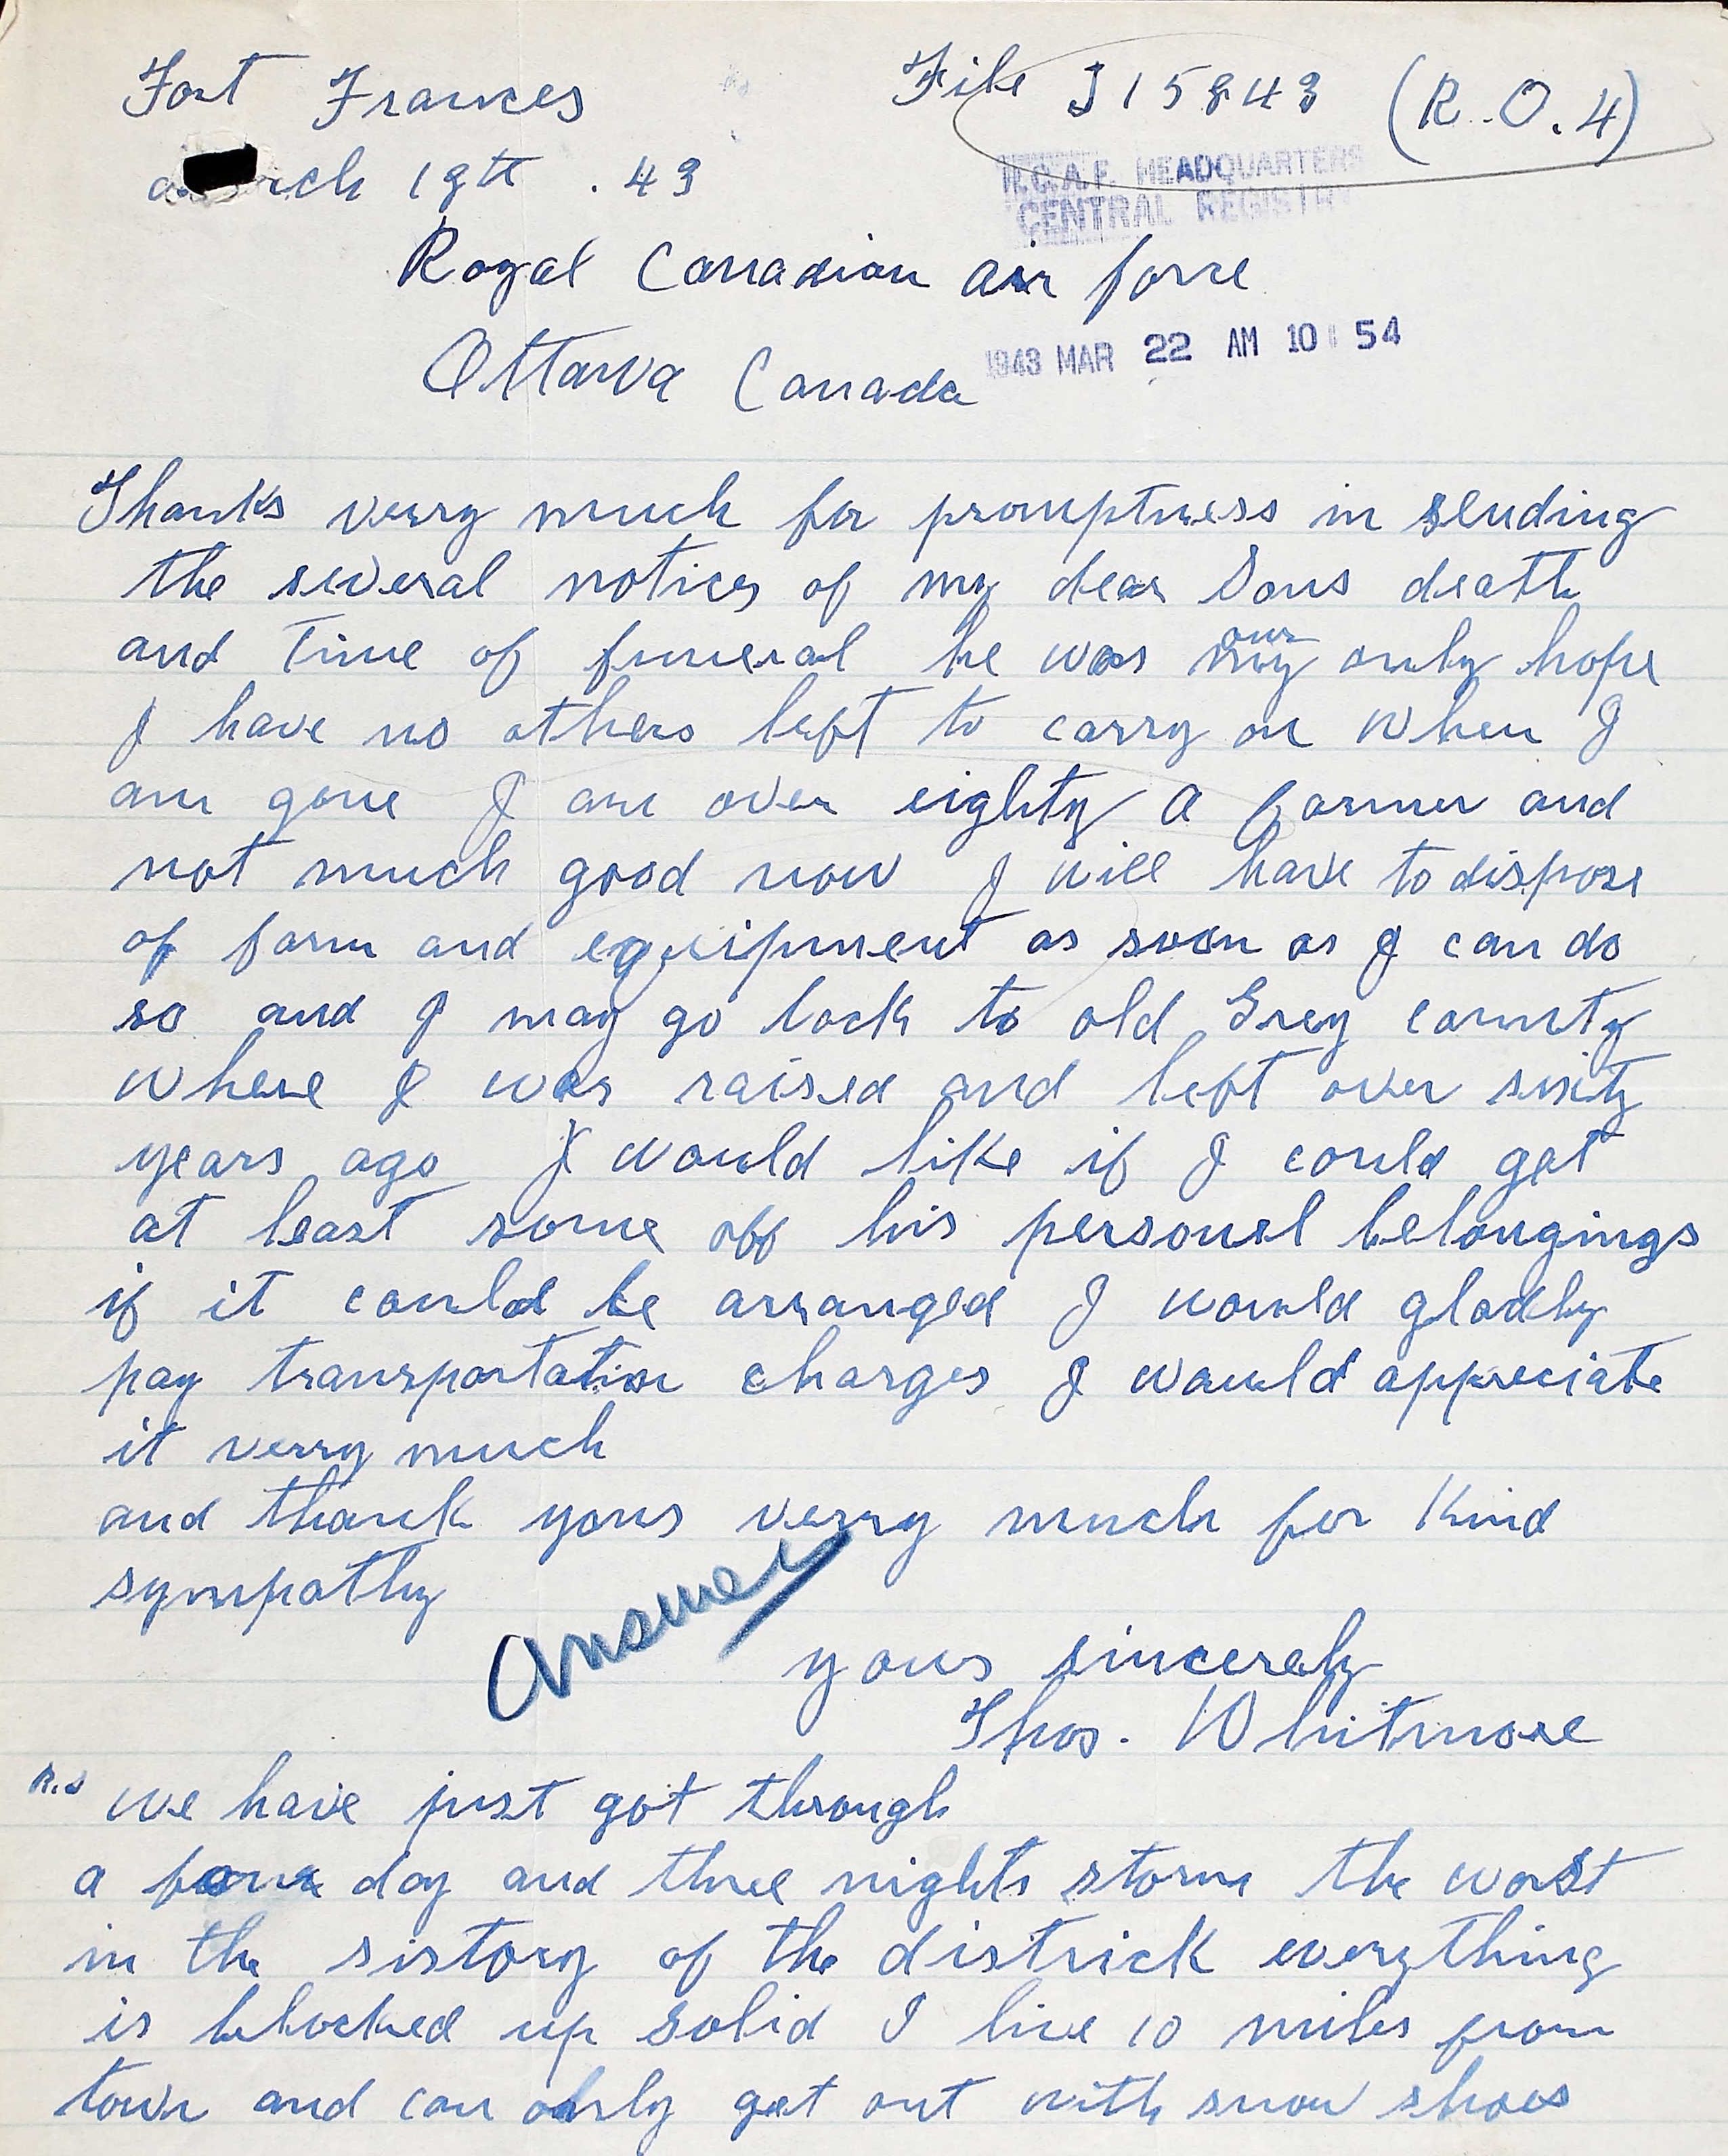 Fort Frances File J15843 (R.O.4)
rch 18th . 43
R.C.A.F. HEADQUARTERS
CENTRAL REGISTRY
Royal Canadian air force
Ottawa Canada
1943 MAR 22 AM 10 54
Thanks verry much for promptness in sending
the several notices of my dear Sons death
and Time of funeral he was my our only hope
I have no others left to carry on when I
am gone I am over eighty a farmer and
not much good now I will have to dispose
of farm and eqquipment as soon as I can do
so and I may go back to old Grey county
where I was raised and left over sixty
years ago I would like if I could get
at least some off his personel belongings
if it could be arranged I would gladly
pay transportation charges I would appreciate
it verry much
and thank yous verry much for Kind
sympathy
Answer
yours sincerely
Thos. Whitmore
we have just got through
a four day and three nights storm the worst
in the sistory of the districk everything
is blocked up solid I live 10 miles from
town and can only get out with snow shoes